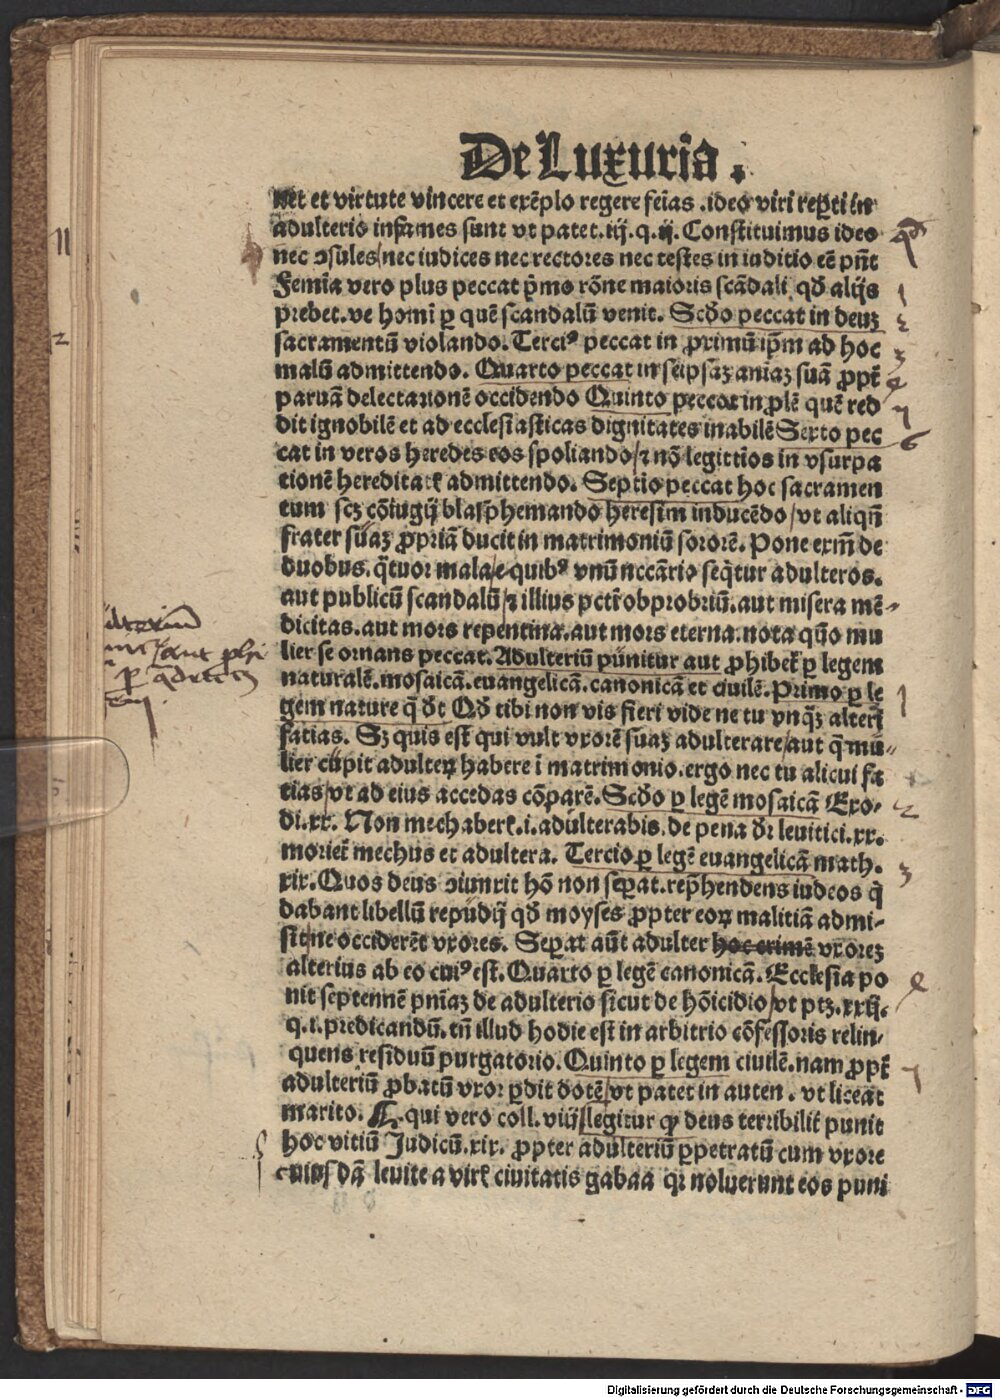 De Luxuria.
net et virtute vincere et exēplo regere feīas .ideo viri reꝑti in
adulterio infames sunt vt patet .iij. q. ij. Constituimus ideo
nec ↄsules/nec iudices nec rectores nec testes in iuditio eē pn̄t
Femīa vero plus peccat p̄mo rōne maioris scādali qd̄ alijs
prebet .ve homī ꝑ quē scandalū venit. Scd̄o peccat in deuꝫ
sacramentū violando. Terciꝰ peccat in ꝓximū ip̄m ad hoc
malū admittendo. Quarto peccat in seipsaꝫ aniaꝫ suā ꝓpt̄
paruā delectationē occidendo Quinto peccat in ꝓlē quē red
dit ignobilē et ad ecclesiasticas dignitates inabilē Sexto pec
cat in veros heredes eos spoliando/⁊ nō legittīos in vsurpa
tionē heredita admittendo. Septīo peccat hoc sacramen
tum scꝫ cōiugij blasphemando heresim inducēdo/vt aliqn̄
frater suaꝫ ꝓpriā ducit in matrimoniū sororē. Pone exm̄ de
duobus. q̄tuor mala/e quibꝰ vnū nccārio seq̄tur adulteros.
aut publicū scandalū/⁊ illius pctī obprobriū. aut misera mē-
dicitas. aut mors repentina. aut mors eterna. nota qūo mu
lier se ornans peccat. Adulteriū pūnitur aut ꝓhibeꝉ ꝑ legem
naturalē. mosaicā. euangelicā. canonicā et ciuilē. Primo ꝑ le
gem nature q̄ dt̄ Qd̄ tibi non vis fieri vide ne tu vnq̄ꝫ alteri
fatias. Sꝫ quis est qui vult vxorē suaꝫ adulterare/aut q̄ mu-
lier cupit adulteꝝ habere ī matrimonio. ergo nec tu alicui fa
tias/vt ad eius accedas cōparē. Scd̄o ꝑ legē mosaicā Exo-
di .xx. Non mechaberꝭ .i. adulterabis. de pena dr̄ leuitici .xx.
morieꝉ mechus et adultera. Tercio ꝑ legē euangelicā math.
xix. Quos deus ↄiunxit hō non seꝑat. rep̄hendens iudeos q̄
dabant libellū repudij qd̄ moyses ꝓpter eoꝝ malitiā admi-
sit/ne occiderēt vxores. Seꝑat aūt adulter hoc crimē vxoreꝫ
alterius ab eo cuiꝰ est. Quarto ꝑ legē canonicā. Ecclesia po
nit septennē pn̄iaꝫ de adulterio sicut de hōicidio/vt ptꝫ .xxij.
q. i. predicandū. tn̄ illud hodie est in arbitrio cōfessoris relin-
quens residuū purgatorio. Quinto ꝑ legem ciuilē. nam ꝓpt̄
adulteriū ꝓbatū vxor ꝑdit dotē/vt patet in auten. vt liceat
marito. qui vero coll. viij/legitur ꝙ deus terribiliꝉ punit
hoc vitiū Judicū .xix. ꝓpter adulteriū ꝑpetratū cum vxore
cuiusdā leuite a virꝭ ciuitatis gabaa qr̄ noluerunt eos puni
1
2
3
6
1
2
3
Digitalisierung gefördert durch die Deutsche Forschungsgemeinschaft - DFG